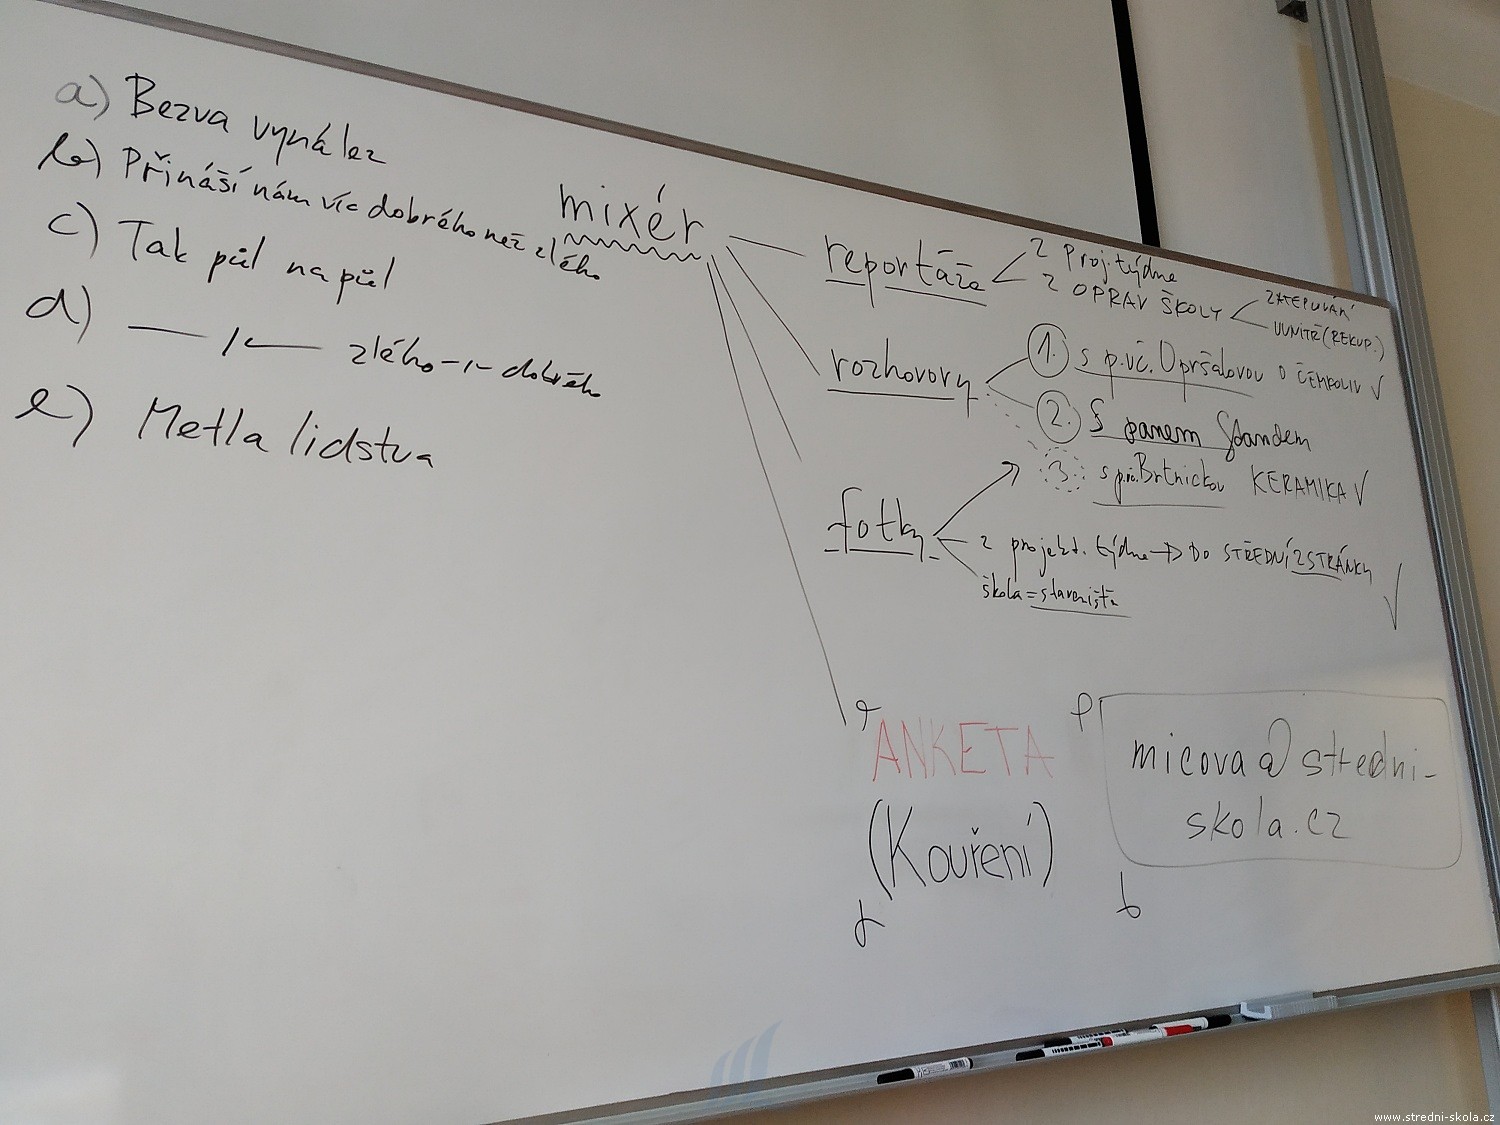 a) Bezva vynález
b) Přináší nám víc dobrého než zlého
c) Tak půl na půl
d) — 〃 — zlého -〃- dobrého
e) Metla lidstva
mixér
reportáže
z Proj. týdne
z OPRAV ŠKOLY
ZATEPLOVÁNÍ
UVNITŘ (REKUP.)
rozhovory
1. s p. uč. Opršalovou o ČEMPOLIU ✓
2. S panem
3. s p. uč. Brtnickou KERAMIKA ✓
fotky
z projekt. týdne → DO STŘEDNÍ 2STRÁNKY ✓
škola = staveniště
ANKETA
(Kouření)
micova@stredni-
skola.cz
www.stredni-skola.cz